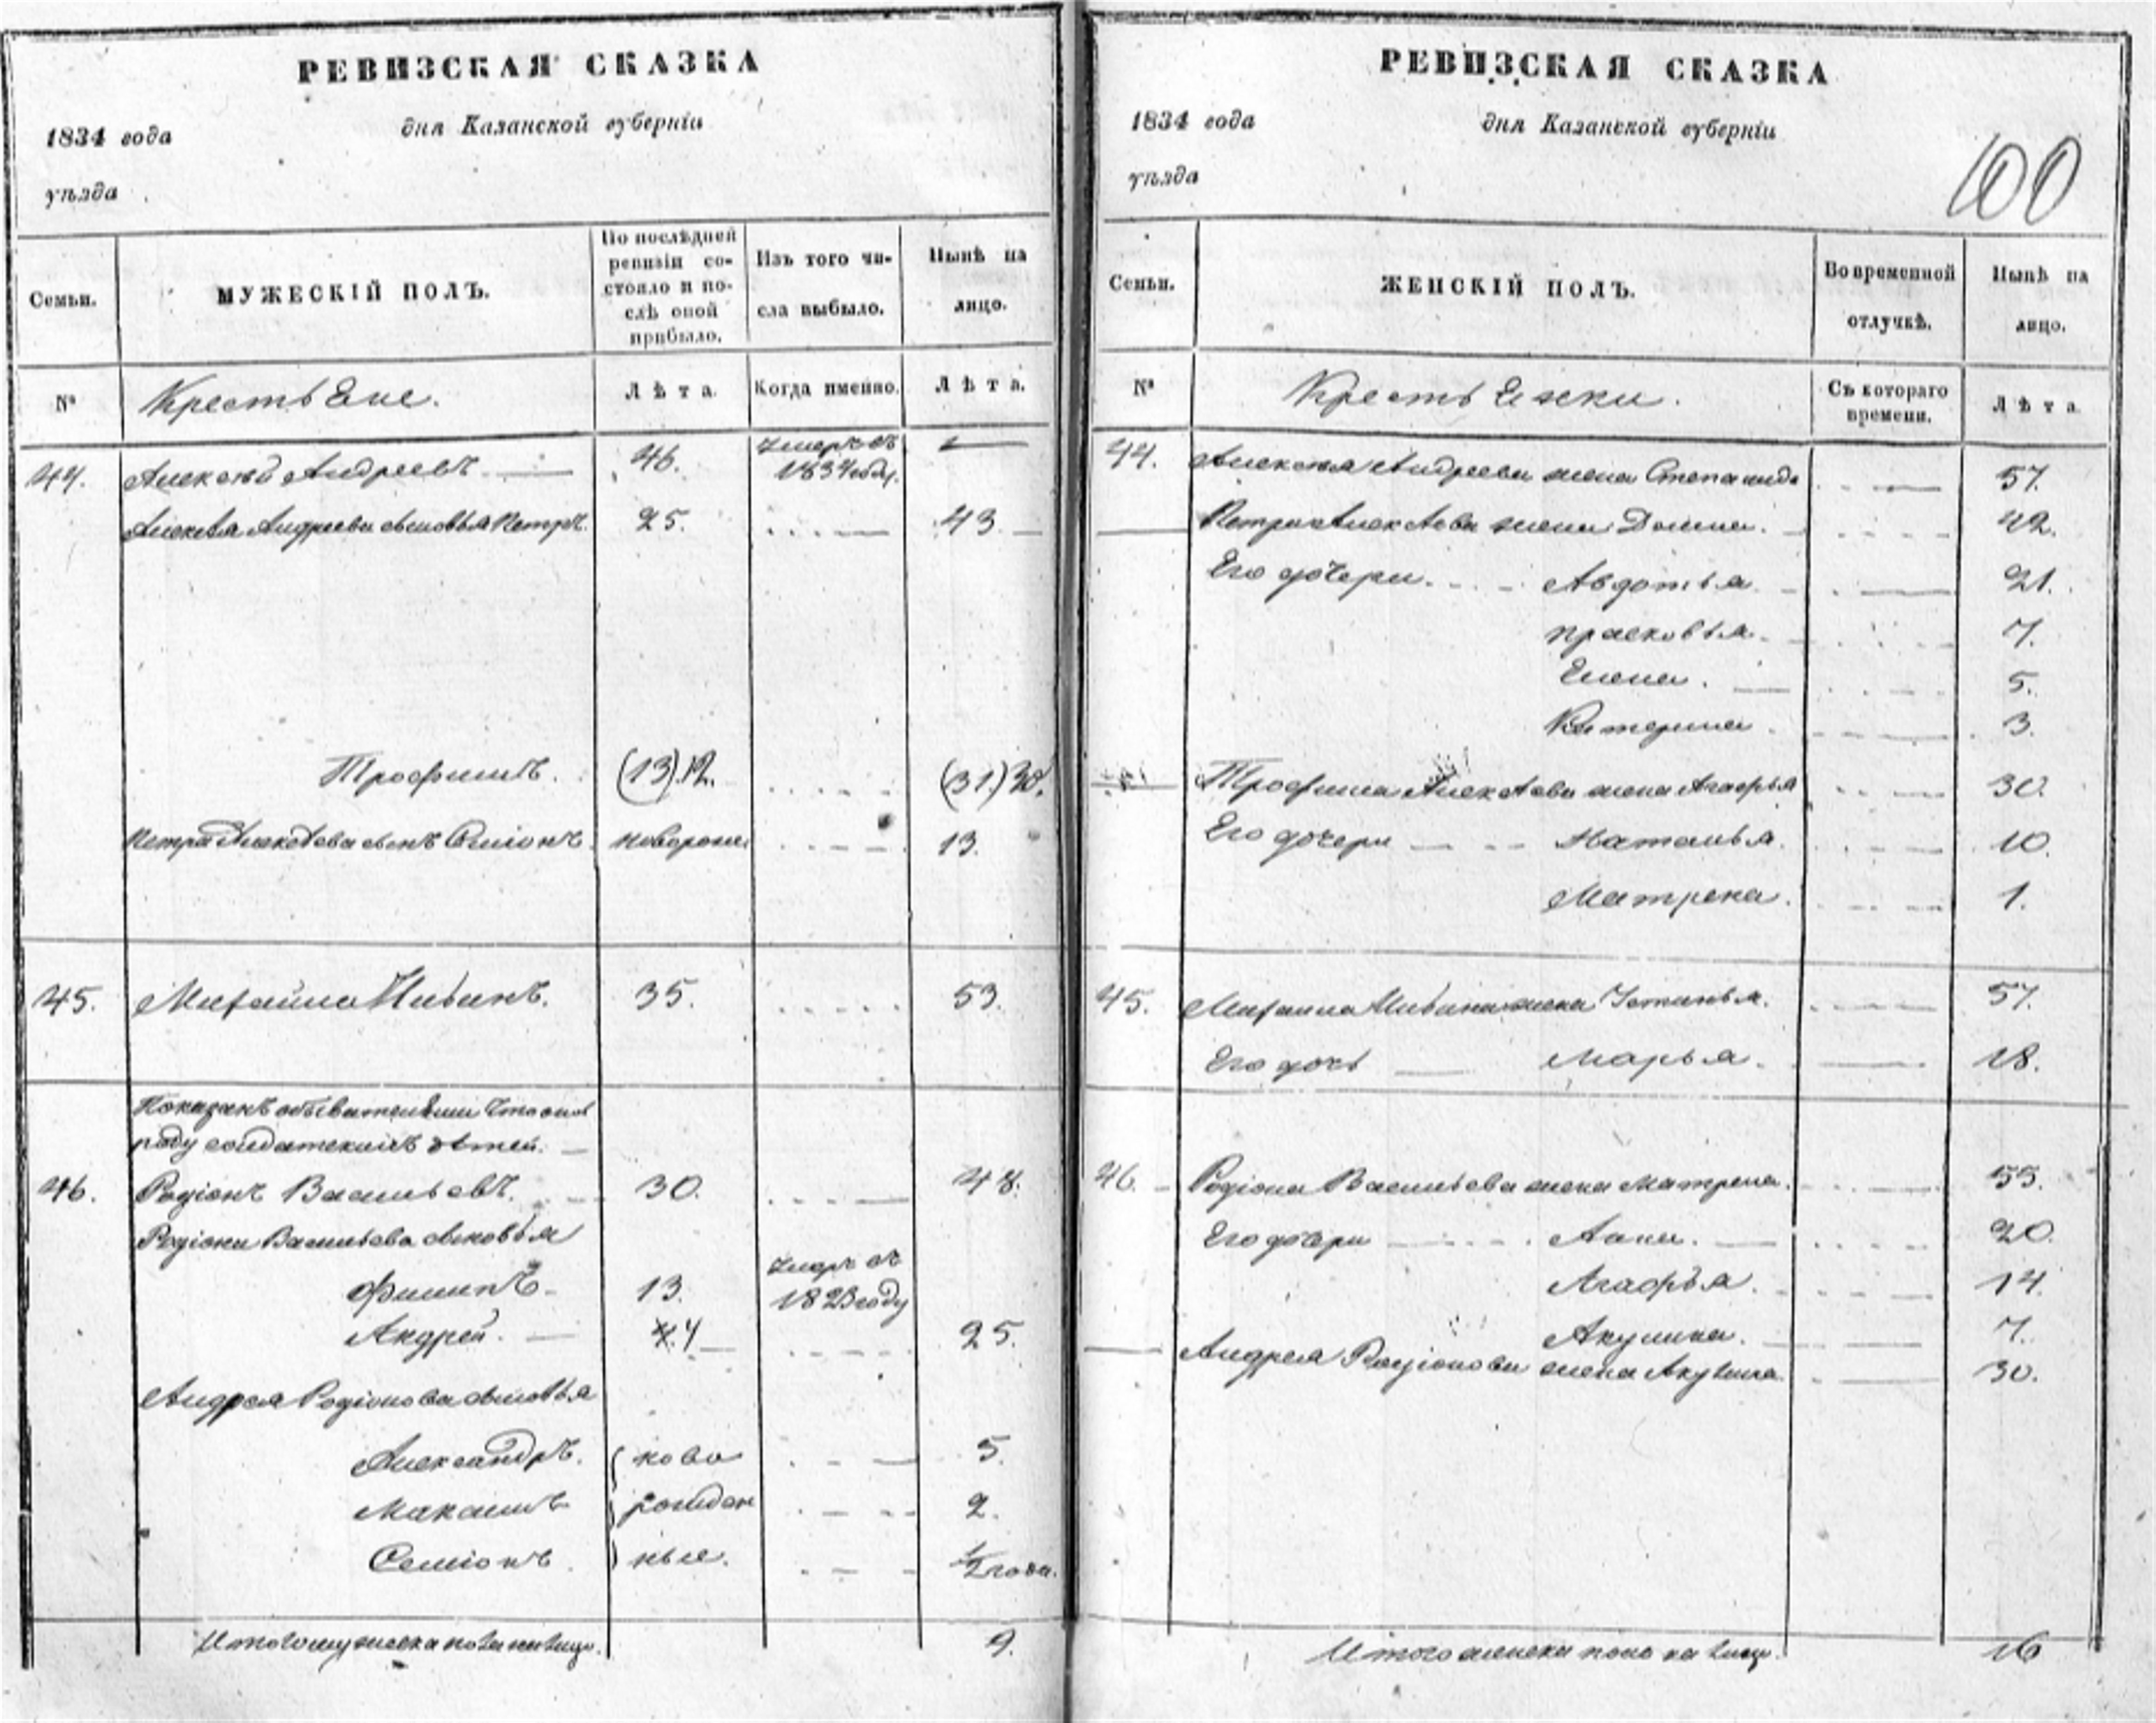 РЕВИЗСКАЯ СКАЗКА
1834 года дня Казанской губерніи
уѣзда
Семьи. МУЖЕСКІЙ ПОЛЪ. По послѣдней ревизіи состояло и послѣ оной прибыло. Изъ того числа выбыло. Нынѣ на лицо.
№ Крестьяне. Лѣта. Когда именно. Лѣта.
44. Алексѣй Андреевъ 46. Умеръ въ 1834 году.
Алексѣя Андреева сыновья Петръ. 25. 43
Трофимъ. (13).12. (31.)30.
Петра Алексѣева сынъ Семіонъ. новорож. 13.
45. Михайла Ивановъ. 35. 53.
Показанъ обывателями что онъ
роду солдатскихъ детей.
46. Родіонъ Васильевъ. 30. 48.
Родіона Васильева сыновья
Филипъ 13. Умеръ въ 1823 году
Андрей. 7 25.
Андрея Родіонова сыновья
Александръ. ново 5.
Максимъ рожден 2.
Семіонъ. ные. 1/2 года.
Итого мужеска пола на лицо. 9.
РЕВИЗСКАЯ СКАЗКА
1834 года дня Казанской губерніи
уѣзда
100
Семьи. ЖЕНСКІЙ ПОЛЪ. Во временной отлучкѣ. Нынѣ на лицо.
№ Крестьянки. Съ котораго времени. Лѣта.
44. Алексѣя Андреева жена Степанида 57.
Петра Алексѣева жена Домна. 42.
Его дочери. Авдотья 21.
Прасковья. 7.
Елена. 5.
Катерина. 3.
Трофима Алексѣева жена Агафья 30.
Его дочери Наталья. 10.
Матрена. 1.
45. Михаила Иванова жена Устинья. 57.
Его дочь Марья. 18.
46. Родіона Васильева жена Матрена. 55.
Его дочери Анна. 20.
Агафья. 14.
Акулина. 7.
Андрея Родіонова жена Акулина. 30.
Итого женска пола на лицо. 16